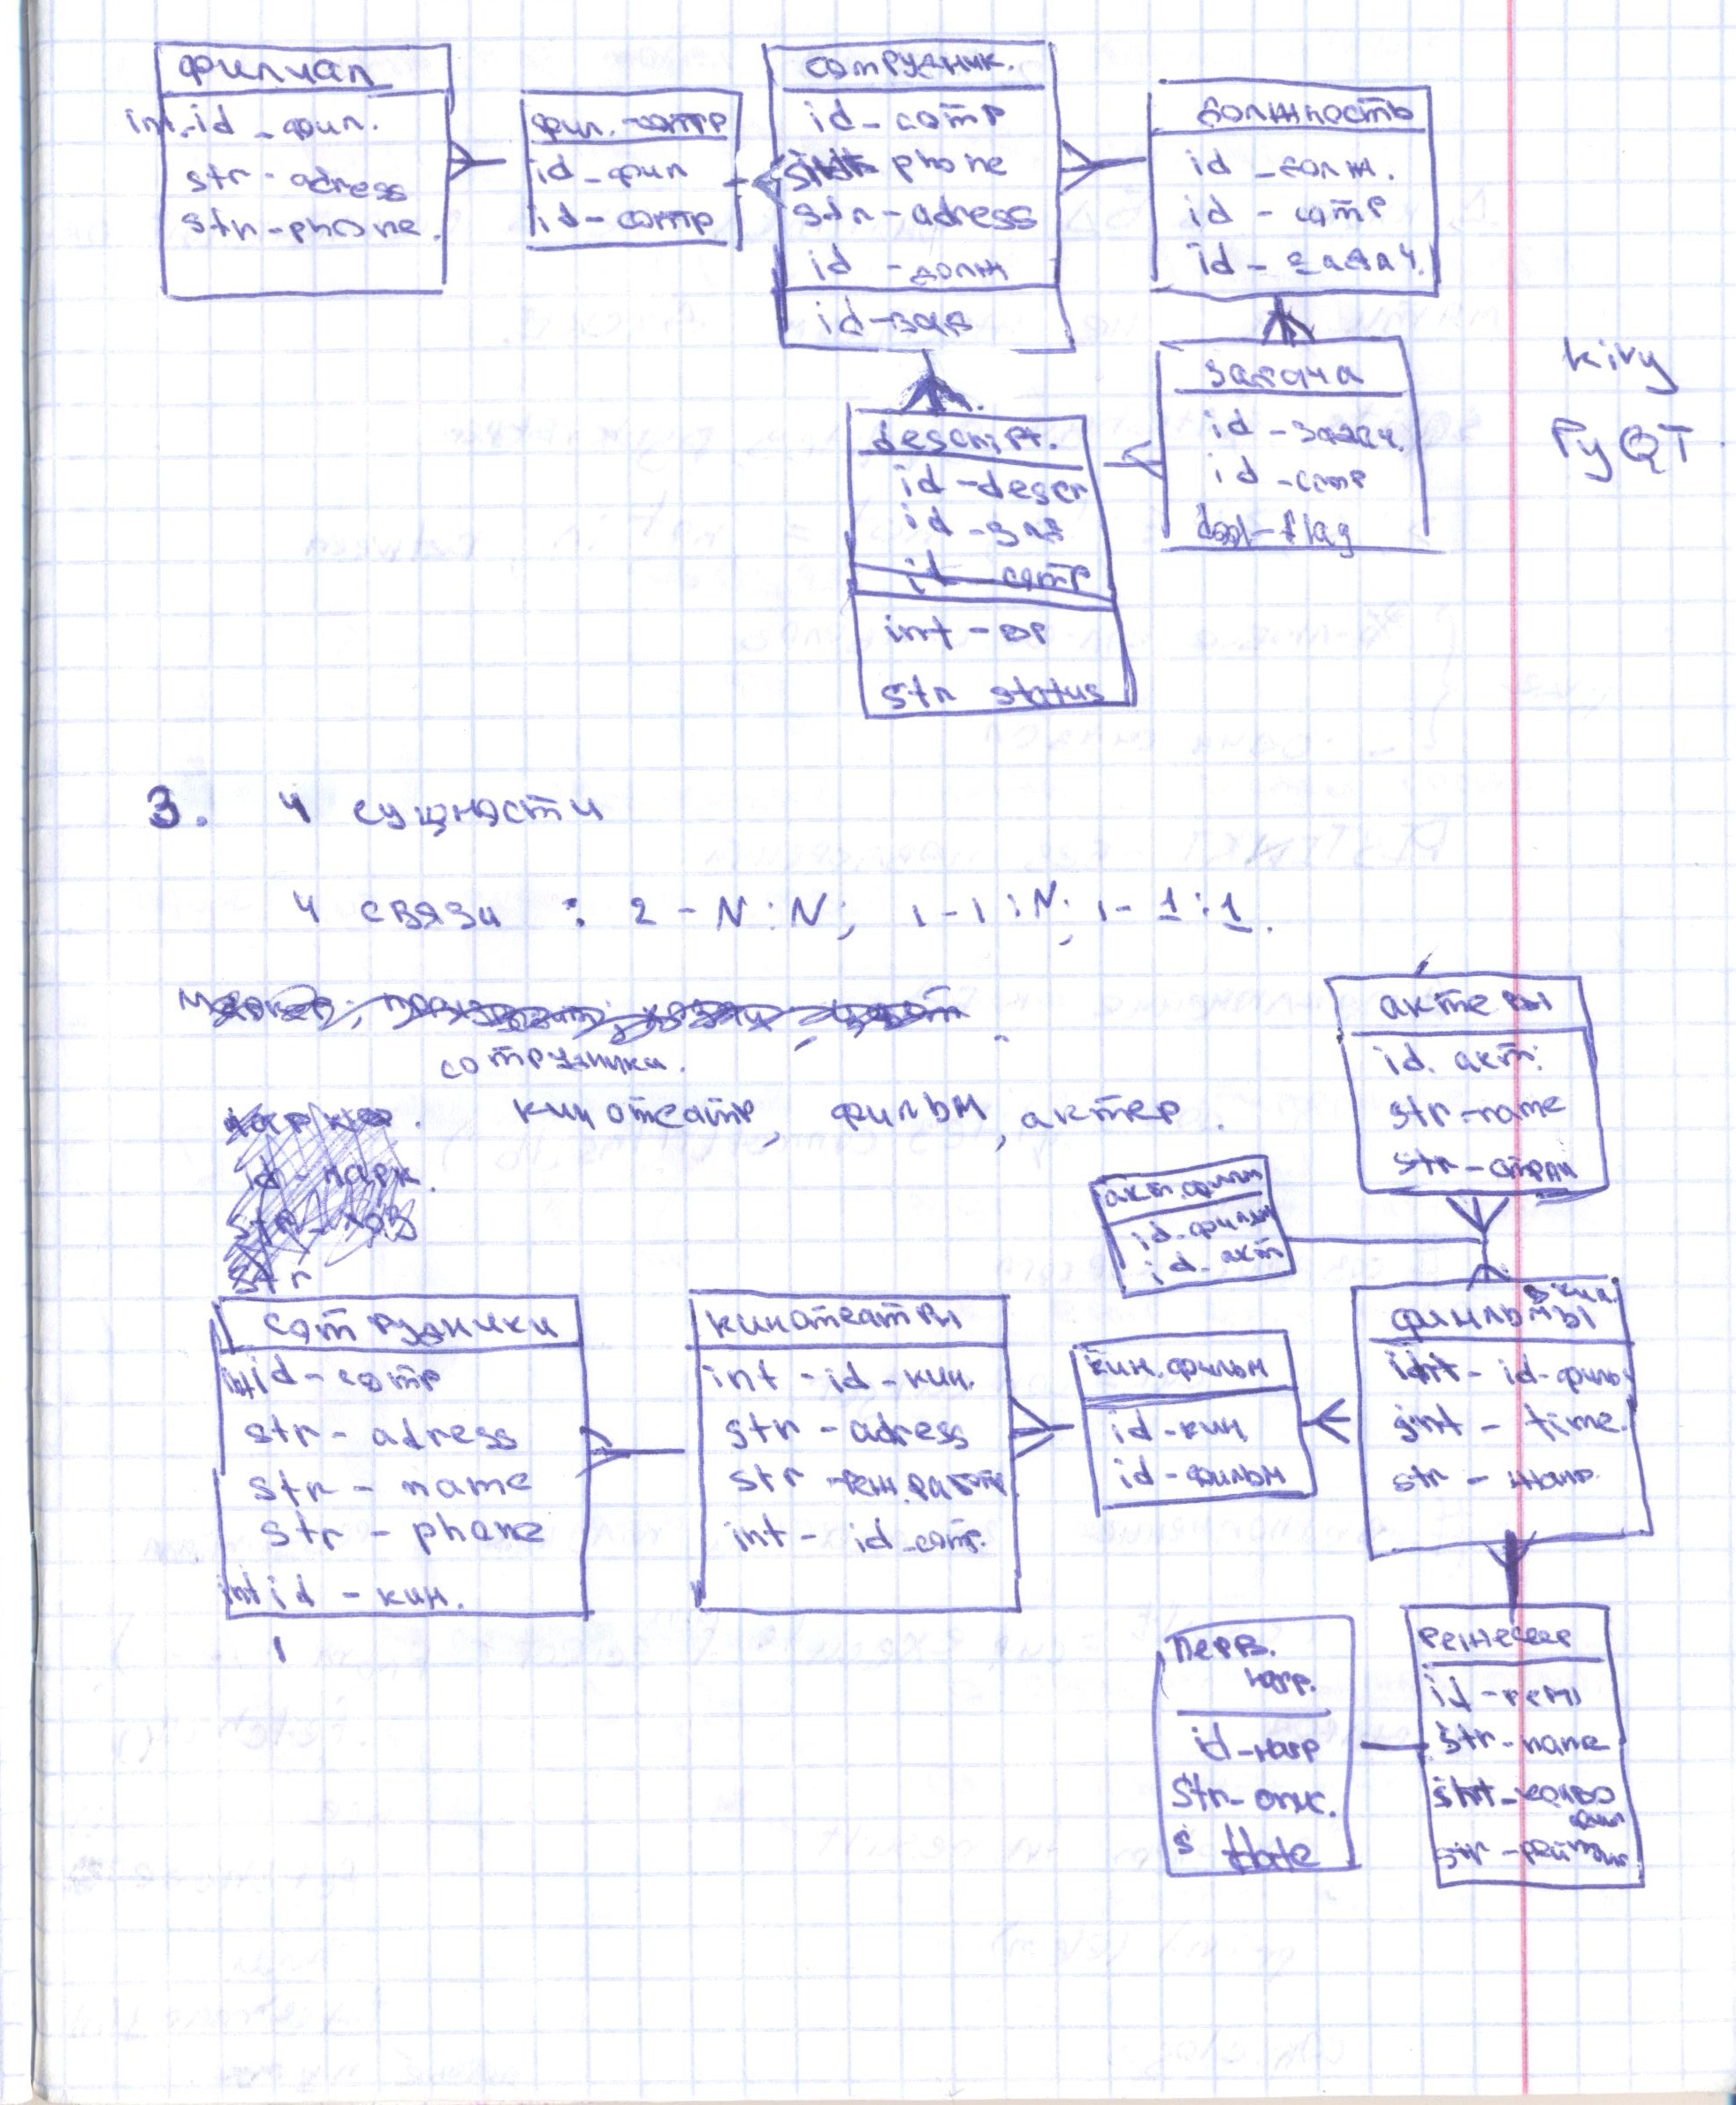 филиал
int-id-фил.
str-adress
str-phone.
фил.-сотр
id-фил
id-сотр
сотрудник.
id-сотр
phone
str-adress
id-долж
id-зад
должность
id-долж.
id-сотр
id-задач.
задача
id-задач.
id-сотр
bool-flag
kivy
PyQT
descript.
id-descr
id-зад
id-сотр
int-ор
str status
3. 4 сущности
4 связи : 2 - N:N; 1-1:N; 1-1:1.
сотрудники.
кинотеатр, фильм, актер.
id-парк.
str
актеры
id. акт.
str-name
акт.фильм
id-фильм
id-акт
сотрудники
int id-сотр
str-adress
str-name
str-phone
int id-кин.
кинотеатры
int-id-кин.
str-adress
str-реж.работ.
int-id-сотр.
кин.фильм
id-кин
id-фильм
фильмы
int-id-филь
int-time.
str-жанр
режессер
id-реж
str-name
int-колво
фил
str-рейтинг
Перв.
нагр.
id-нагр
str-опис.
s date